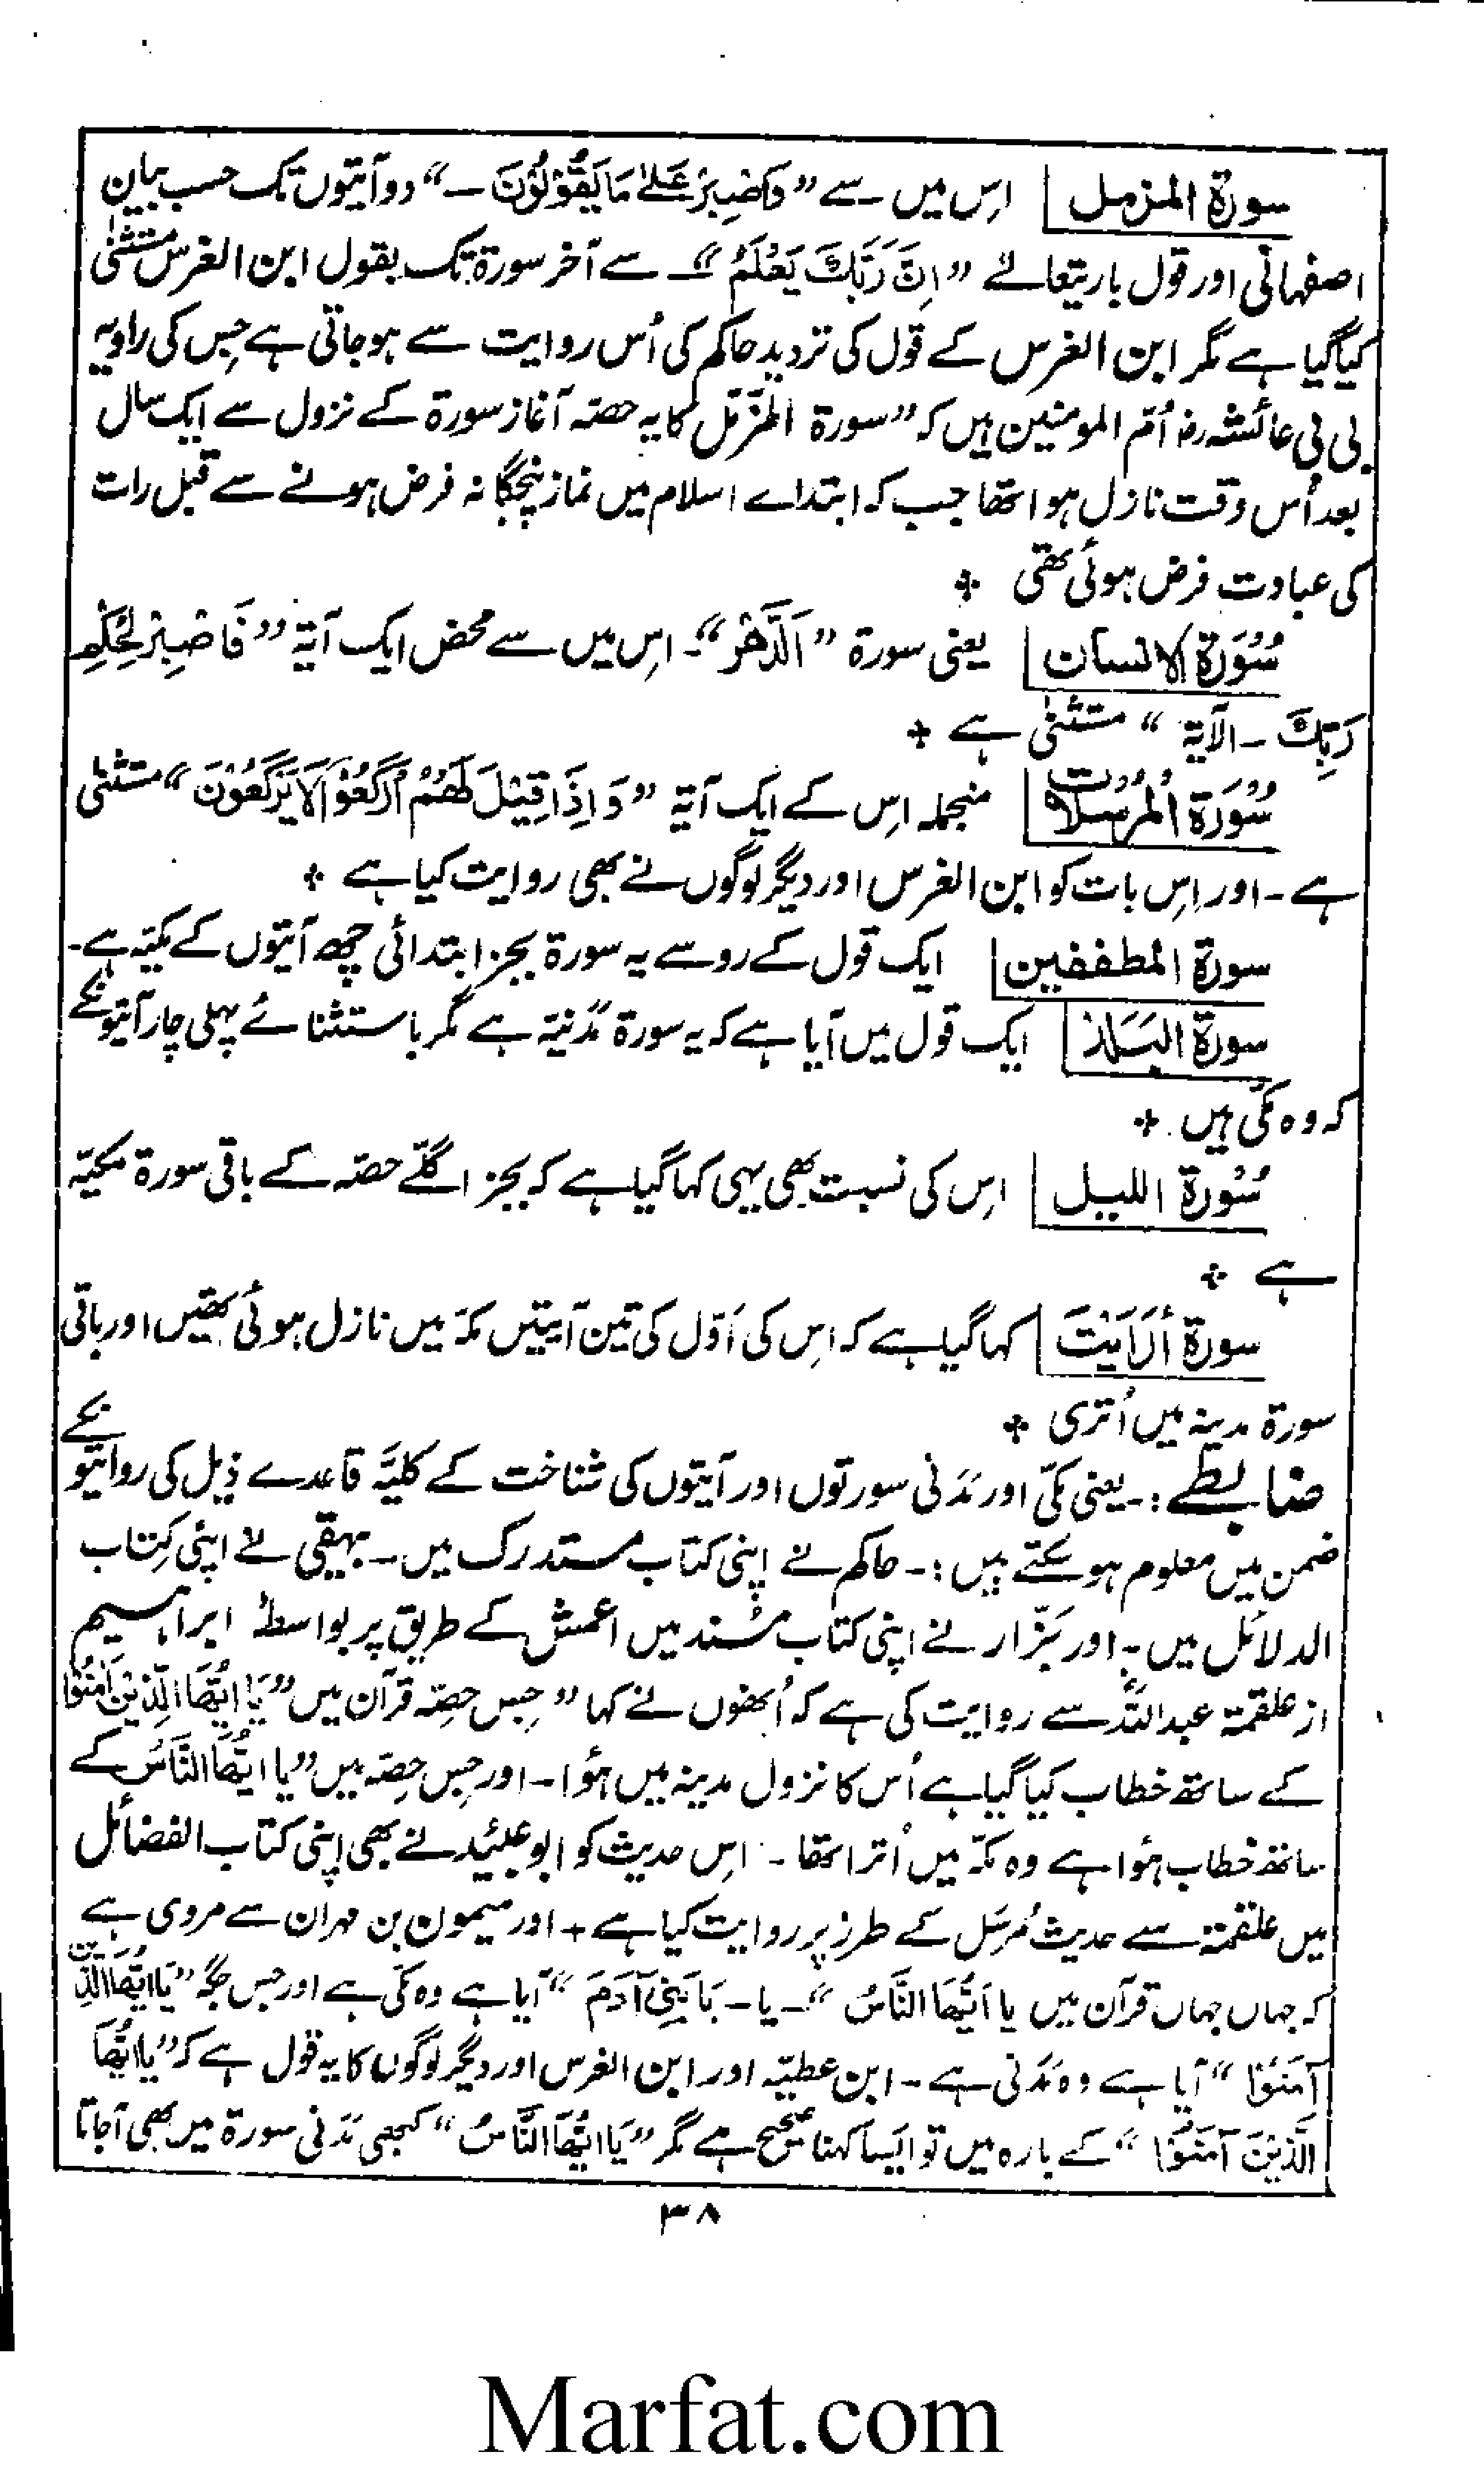 سورۃ المزمل اس میں سے ”وَاصْبِرْ عَلٰی مَا يَقُوْلُوْنَ -“ دو آیتوں تک حسب بیان
اصفہانی اور قول باریتعالےٰ ”اِنَّ رَبَّكَ يَعْلَمُ“ - سے آخر سورۃ تک بقول ابن الغرس مستثنٰی
کیا گیا ہے مگر ابن الغرس کے قول کی تردید حاکم کی اُس روایت سے ہو جاتی ہے جس کی راویہ
بی بی عائشہ رضؓ اُمّ المومنین ہیں کہ ”سورۃ المزّمّل کا یہ حصّہ آغاز سورۃ کے نزول سے ایک سال
بعد اُس وقت نازل ہوا تھا جب کہ ابتداے اسلام میں نماز پنجگانہ فرض ہونے سے قبل رات
کی عبادت فرض ہوئی تھی ٭
سُوْرَۃ الانسان یعنی سورۃ ”اَلدَّهْر“ - اِس میں سے محض ایک آیۃ ”فَاصْبِرْ لِحُكْمِ
رَبِّكَ - الآیۃ“ مستثنٰی ہے ٭
سُوْرَۃ الْمُرْسَلات منجملہ اِس کے ایک آیۃ ”وَ اِذَا قِيْلَ لَهُمُ ارْكَعُوْا لَا يَرْكَعُوْنَ“ مستثنٰی
ہے - اور اِس بات کو ابن الغرس اور دیگر لوگوں نے بھی روایت کیا ہے ٭
سورۃ المطففین ایک قول کے رو سے یہ سورۃ بجز ابتدائی چھ آیتوں کے مکیّہ ہے -
سورۃ البَلَد ایک قول میں آیا ہے کہ یہ سورۃ مَدَنیّۃ ہے مگر باستثنائے پہلی چار آیتونکے
کہ وہ مکّی ہیں ٭
سُوْرۃ اللیل اِس کی نسبت بھی یہی کہا گیا ہے کہ بجز اگلّے حصّہ کے باقی سورۃ مکیّہ
ہے ٭
سورۃ أَرَاَيْتَ کہا گیا ہے کہ اِس کی اَوّل کی تین آیتیں مکّہ میں نازل ہوئی تھیں اور باقی
سورۃ مدینہ میں اُتری ٭
ضابطے :- یعنی مکّی اور مَدَنی سورتوں اور آیتوں کی شناخت کے کلیَّہ قاعدے ذیل کی روایتونکے
ضمن میں معلوم ہو سکتے ہیں :- حاکم نے اپنی کتاب مستدرک میں - بیہقی نے اپنی کتاب
الدلائل میں - اور بَزّار نے اپنی کتاب مُسْند میں اعمش کے طریق پر بواسطۂ ابراہیم
از علقمۃ عبداللہؓ سے روایت کی ہے کہ اُنھوں نے کہا ”جِس حِصّہ قرآن میں ”يَا اَيُّهَا الَّذِيْنَ اٰمَنُوْا
کے ساتھ خطاب کیا گیا ہے اُس کا نزول مدینہ میں ہؤا - اور جِس حِصّہ میں ”يا اَيُّهَا النَّاسُ کے
ساتھ خطاب ہؤا ہے وہ مکّہ میں اُترا تھا - اِس حدیث کو ابو عبُیَد نے بھی اپنی کتاب الفضائل
میں علقمۃ سے حدیث مُرسَل کے طرز پر روایت کیا ہے + اور میمون بن مہران سے مروی ہے
کہ جہاں جہاں قرآن میں يا اَيُّهَا النَّاسُ“ - یا - يَا بَنِیْ آدَمَ“ آیا ہے وہ مکّی ہے اور جس جگہ ”يَا اَيُّهَا الَّذِيْنَ
آمَنُوْا“ آیا ہے وہ مَدَنی ہے - ابن عطیّہ اور ابن الغرس اور دیگر لوگوں کا یہ قول ہے کہ ”يا اَيُّهَا
الَّذِيْنَ آمَنُوْا“ کے بارہ میں تو ایسا کہنا صحیح ہے مگر ”يَا اَيُّهَا النَّاسُ“ کبھی مَدَنی سورۃ میں بھی آجاتا
۳۸
Marfat.com